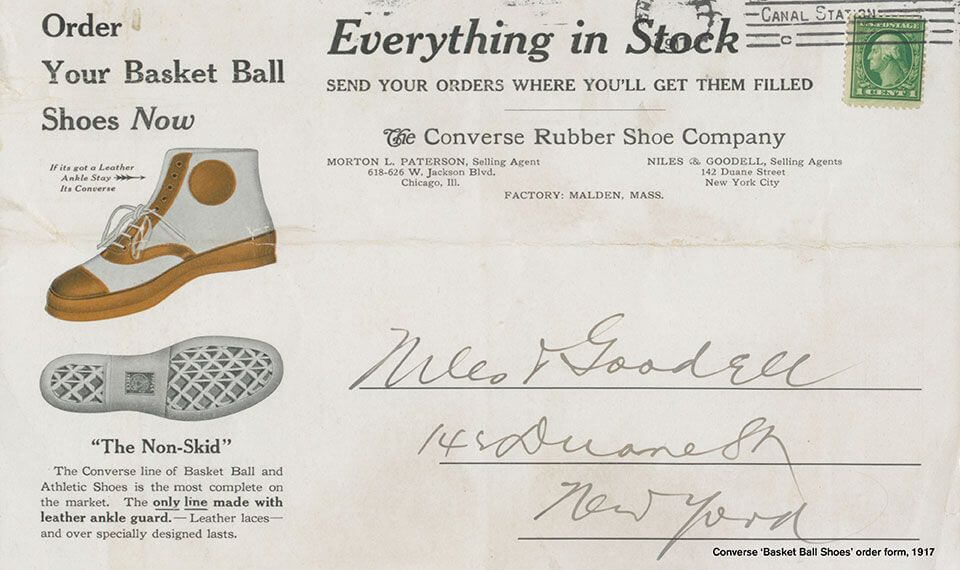 Order
Your Basket Ball
Shoes Now
If its got a Leather
Ankle Stay
Its Converse
"The Non-Skid"
The Converse line of Basket Ball and
Athletic Shoes is the most complete on
the market. The only line made with
leather ankle guard.—Leather laces—
and over specially designed lasts.
CANAL STATION
U.S. POSTAGE
1 CENT 1
Everything in Stock
SEND YOUR ORDERS WHERE YOU'LL GET THEM FILLED
The Converse Rubber Shoe Company
MORTON L. PATERSON, Selling Agent
618-626 W. Jackson Blvd.
Chicago, Ill.
NILES & GOODELL, Selling Agents
142 Duane Street
New York City
FACTORY: MALDEN, MASS.
Niles & Goodell
142 Duane St
New York
Converse 'Basket Ball Shoes' order form, 1917